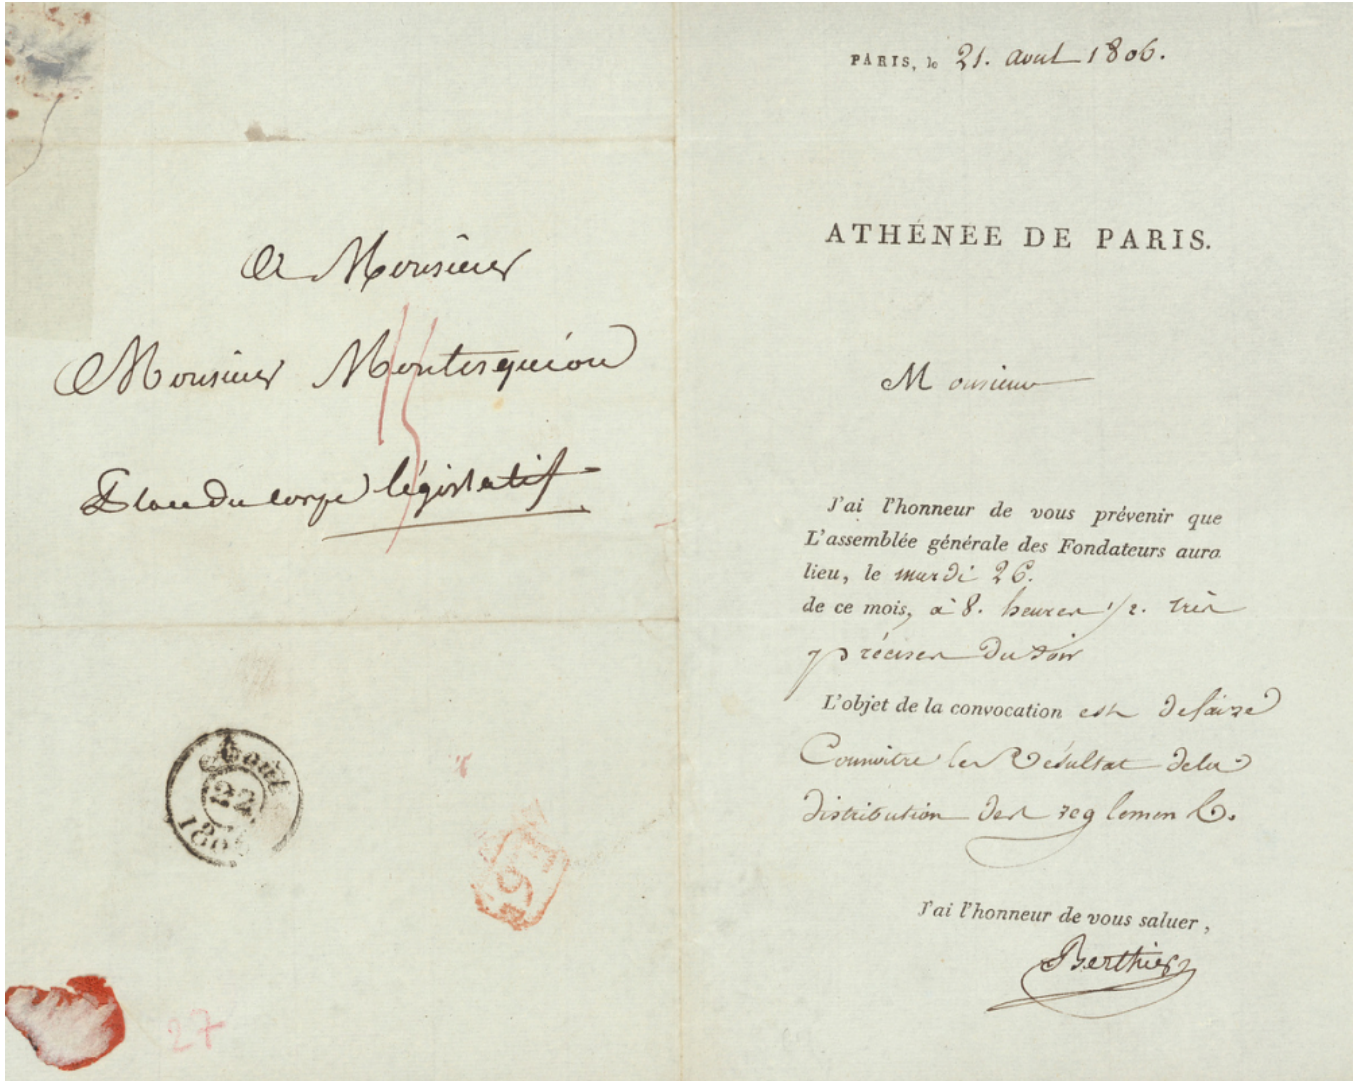 A Monsieur
Monsieur Montesquiou
Place du corps législatif
15
Aout
22
1806
27
PARIS, le 21. aout 1806.
ATHÉNEE DE PARIS.
Monsieur
J'ai l'honneur de vous prévenir que
L'assemblée générale des Fondateurs aura
lieu, le mardi 26.
de ce mois, à 8. heures 1/2. très
précises du soir
L'objet de la convocation est de faire
Connoitre les Résultat de la
distribution des reglemens.
J'ai l'honneur de vous saluer,
Berthier